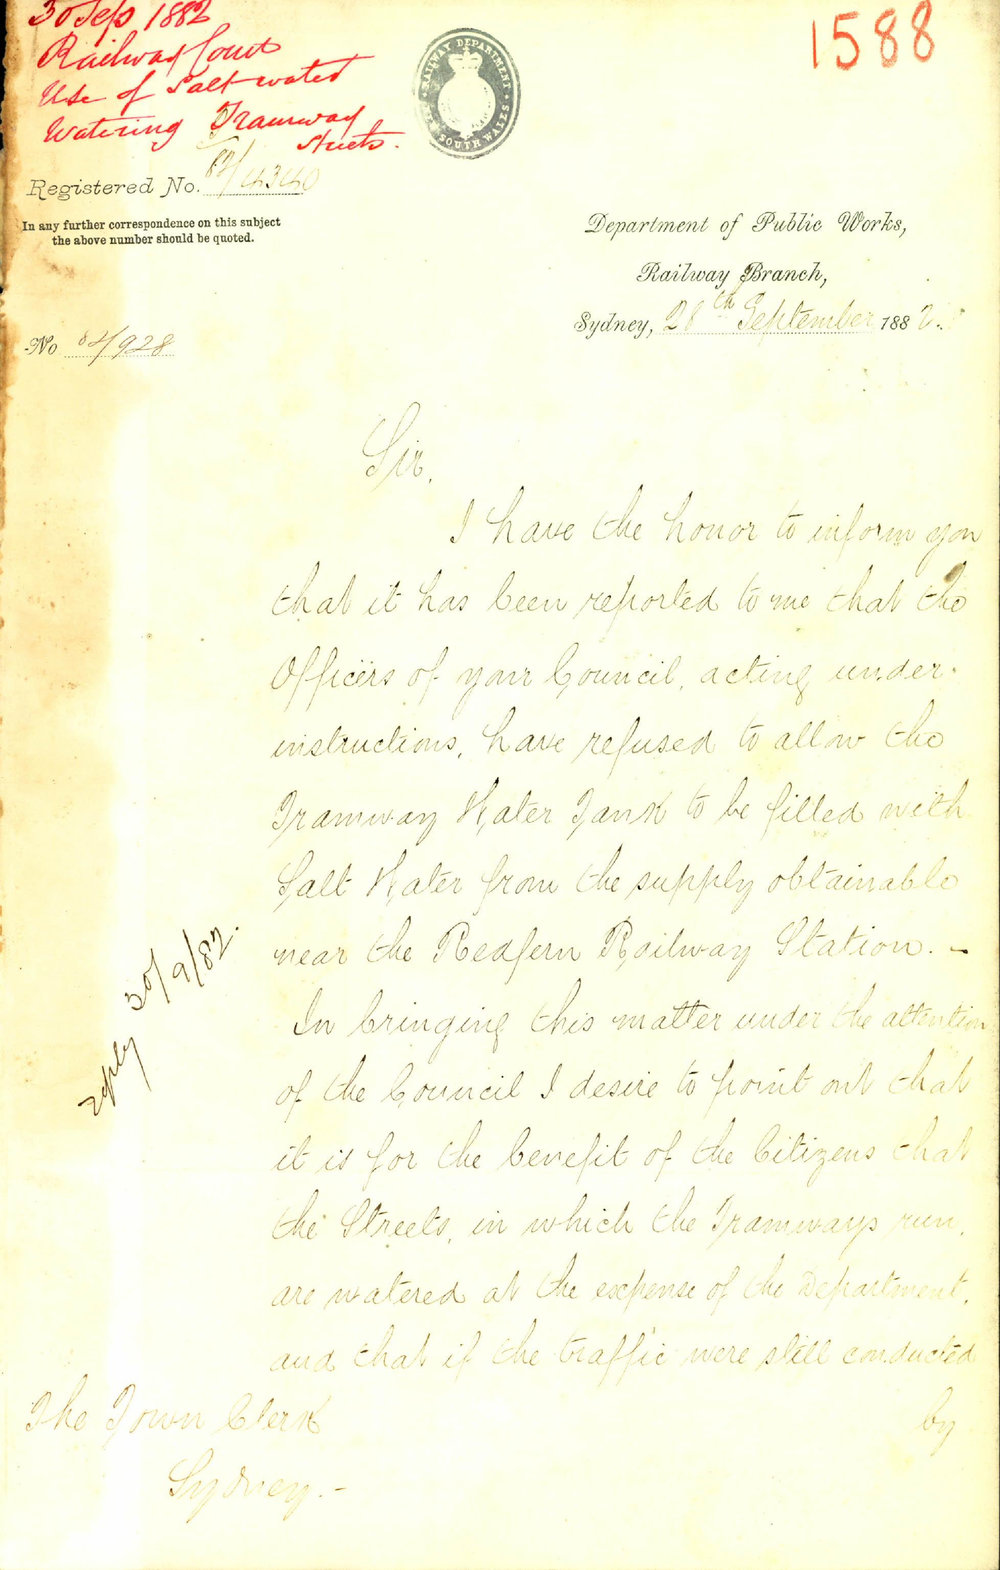 30 Sep 1882
Railway Com
Use of Salt water
Watering Tramway
Streets.
1588
RAILWAY DEPARTMENT
NEW SOUTH WALES
Registered No. 82/4340
In any further correspondence on this subject
the above number should be quoted.
Department of Public Works,
Railway Branch,
Sydney, 28th September 1882.
No 82/928
Sir,
I have the honor to inform you
that it has been reported to me that the
Officers of your Council, acting under
instructions, have refused to allow the
Tramway Water Tank to be filled with
Salt Water from the supply obtainable
near the Redfern Railway Station. –
In bringing this matter under the attention
of the Council I desire to point out that
it is for the benefit of the Citizens that
the Streets, in which the Tramways run,
are watered at the expense of the Department,
and that if the traffic were still conducted
by
reply 30/9/82.
The Town Clerk
Sydney. –